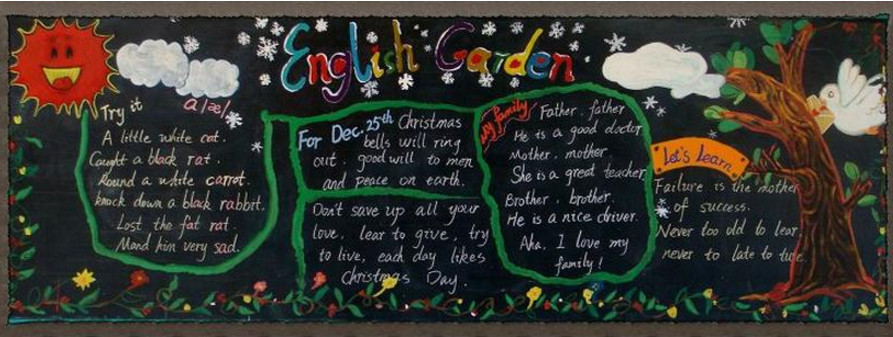 English Garden
Try it
a/æ/
A little white cat.
Caught a black rat.
Round a white carrot.
knock down a black rabbit.
Lost the fat rat.
Mand him very sad.
For Dec. 25th Christmas
bells will ring
out. good will to men
and peace on earth.
Don't save up all your
love, lear to give, try
to live, each day likes
Christmas Day.
My family
Father, father
He is a good doctor
Mother, mother
She is a great teacher
Brother, brother.
He is a nice driver.
Aha, I love my
family!
Let's Learn
Failure is the mother
of success.
Never too old to lear,
never to late to